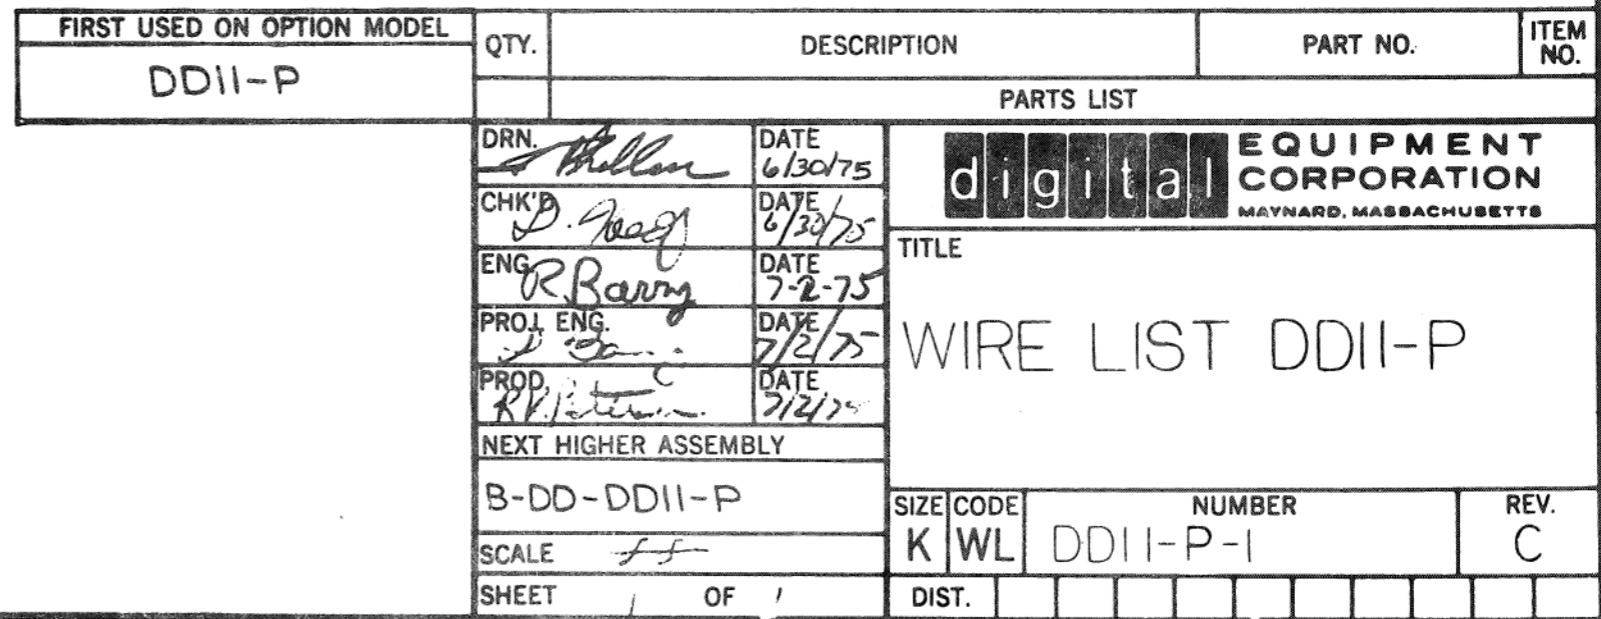 FIRST USED ON OPTION MODEL
DD11-P
QTY.
DESCRIPTION
PART NO.
ITEM NO.
PARTS LIST
DRN.
DATE
6/30/75
CHK'D
D.
DATE
6/30/75
ENG.
R. Barry
DATE
7-2-75
PROJ. ENG.
DATE
7/2/75
PROD.
DATE
7/2/75
NEXT HIGHER ASSEMBLY
B-DD-DD11-P
SCALE
SHEET 1 OF 1
digital EQUIPMENT
CORPORATION
MAYNARD, MASSACHUSETTS
TITLE
WIRE LIST DD11-P
SIZE
K
CODE
WL
NUMBER
DD11-P-1
REV.
C
DIST.